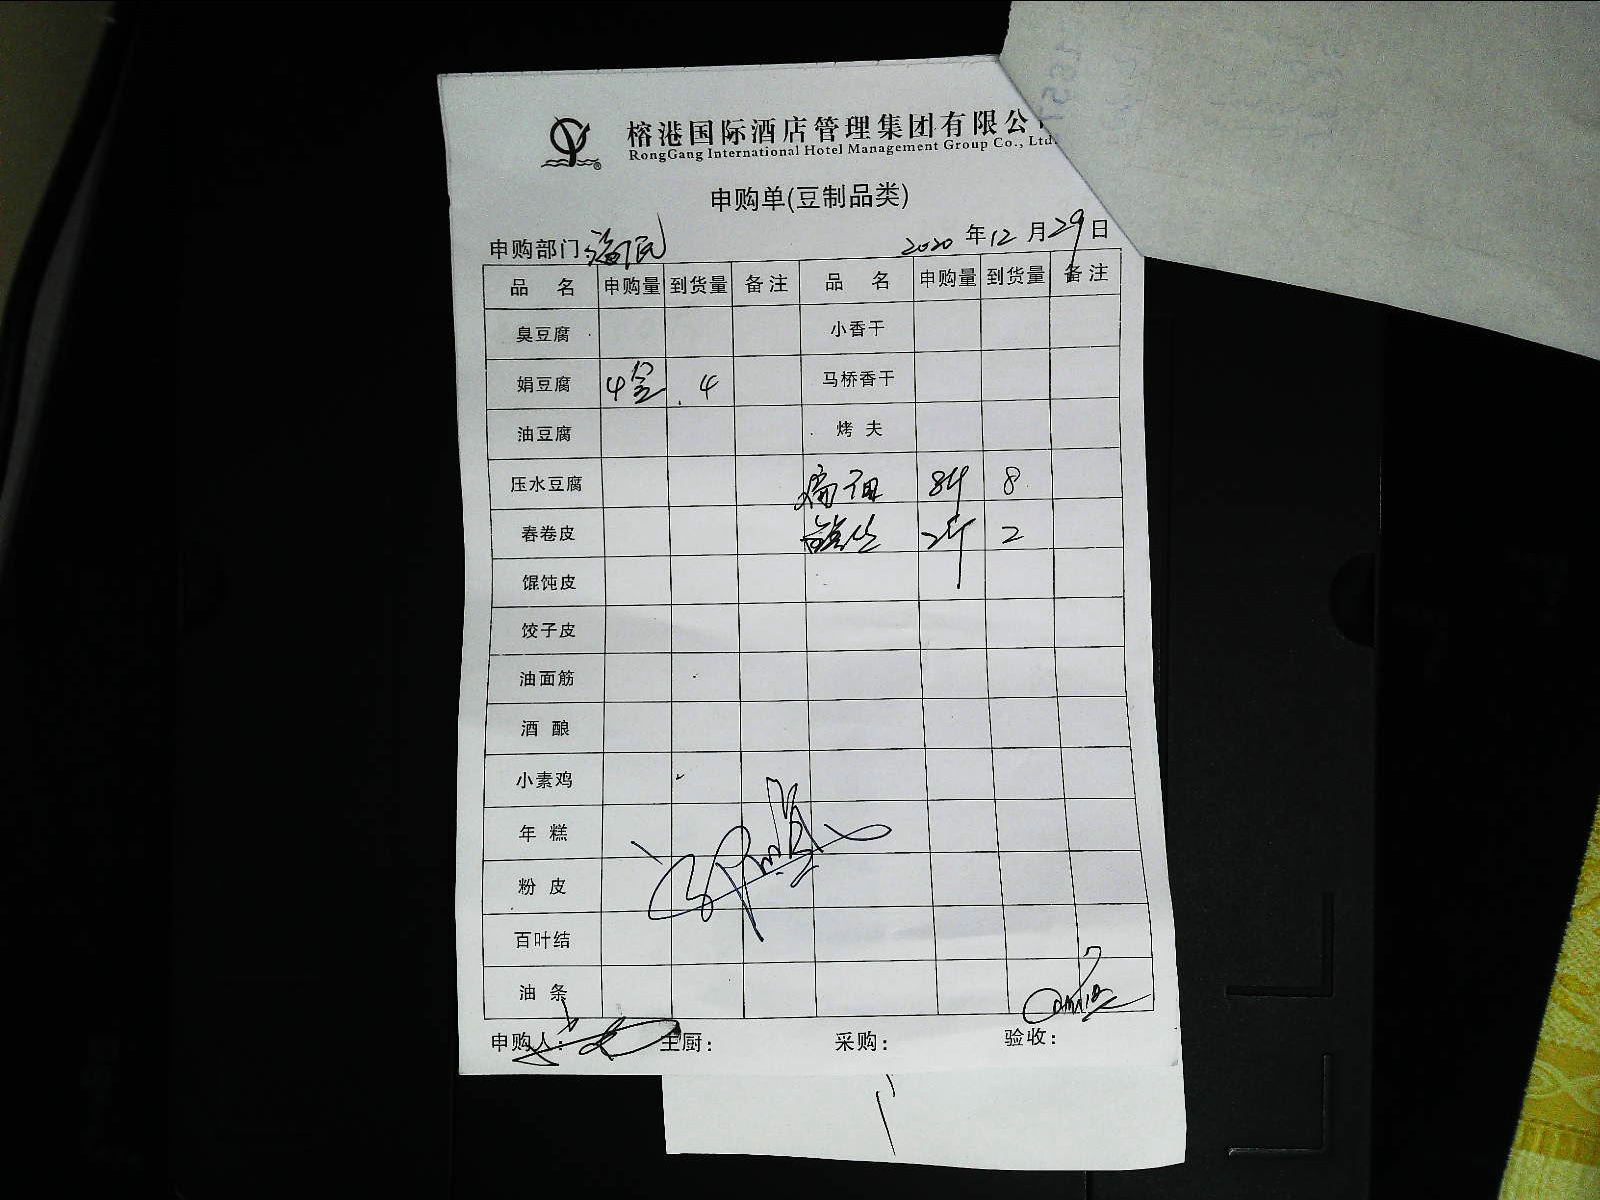 榕港国际酒店管理集团有限公
RongGang International Hotel Management Group Co., Ltd.
申购单(豆制品类)
申购部门: 2020 年 12 月 29 日
品 名 申购量 到货量 备注 品 名 申购量 到货量 备注
臭豆腐 小香干
娟豆腐 4盒 4 马桥香干
油豆腐 烤 夫
压水豆腐 8斤 8
春卷皮 2斤 2
馄饨皮
饺子皮
油面筋
酒 酿
小素鸡
年 糕
粉 皮
百叶结
油 条
申购人: 主厨: 采购: 验收: